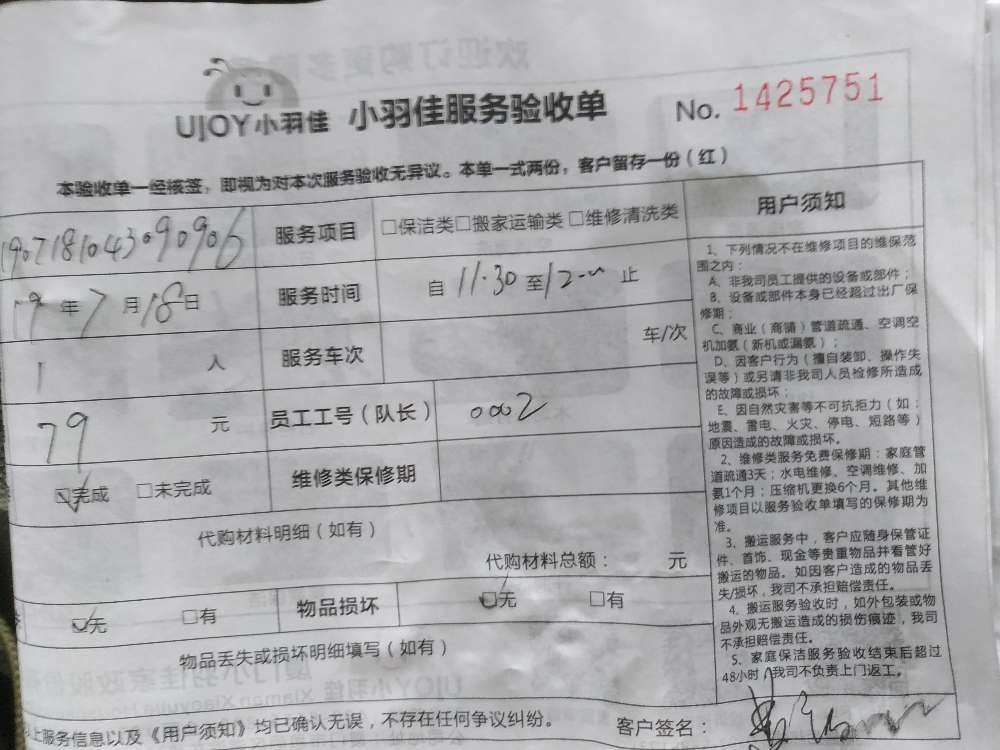 UJOY小羽佳 小羽佳服务验收单 No. 1425751
本验收单一经核签，即视为对本次服务验收无异议。本单一式两份，客户留存一份（红）
1907181043090906 服务项目 □保洁类□搬家运输类 □维修清洗类
19 年 7 月 18 日 服务时间 自 11:30 至 12 止
1 人 服务车次 车/次
79 元 员工工号（队长） 0002
完成 □未完成 维修类保修期
代购材料明细（如有）
代购材料总额： 元
无 □有 物品损坏 无 □有
物品丢失或损坏明细填写（如有）
以上服务信息以及《用户须知》均已确认无误，不存在任何争议纠纷。 客户签名：
用户须知
1、下列情况不在维修项目的维保范
围之内：
A、非我司员工提供的设备或部件；
B、设备或部件本身已经超过出厂保
修期；
C、商业（商铺）管道疏通、空调空
机加氨（新机或漏氨）；
D、因客户行为（擅自装卸、操作失
误等）或另请非我司人员检修所造成
的故障或损坏；
E、因自然灾害等不可抗拒力（如：
地震、雷电、火灾、停电、短路等）
原因造成的故障或损坏。
2、维修类服务免费保修期：家庭管
道疏通3天；水电维修、空调维修、加
氨1个月；压缩机更换6个月。其他维
修项目以服务验收单填写的保修期为
准。
3、搬运服务中，客户应随身保管证
件、首饰、现金等贵重物品并看管好
搬运的物品。如因客户造成的物品丢
失/损坏，我司不承担赔偿责任。
4、搬运服务验收时，如外包装或物
品外观无搬运造成的损伤痕迹，我司
不承担赔偿责任。
5、家庭保洁服务验收结束后超过
48小时，我司不负责上门返工。